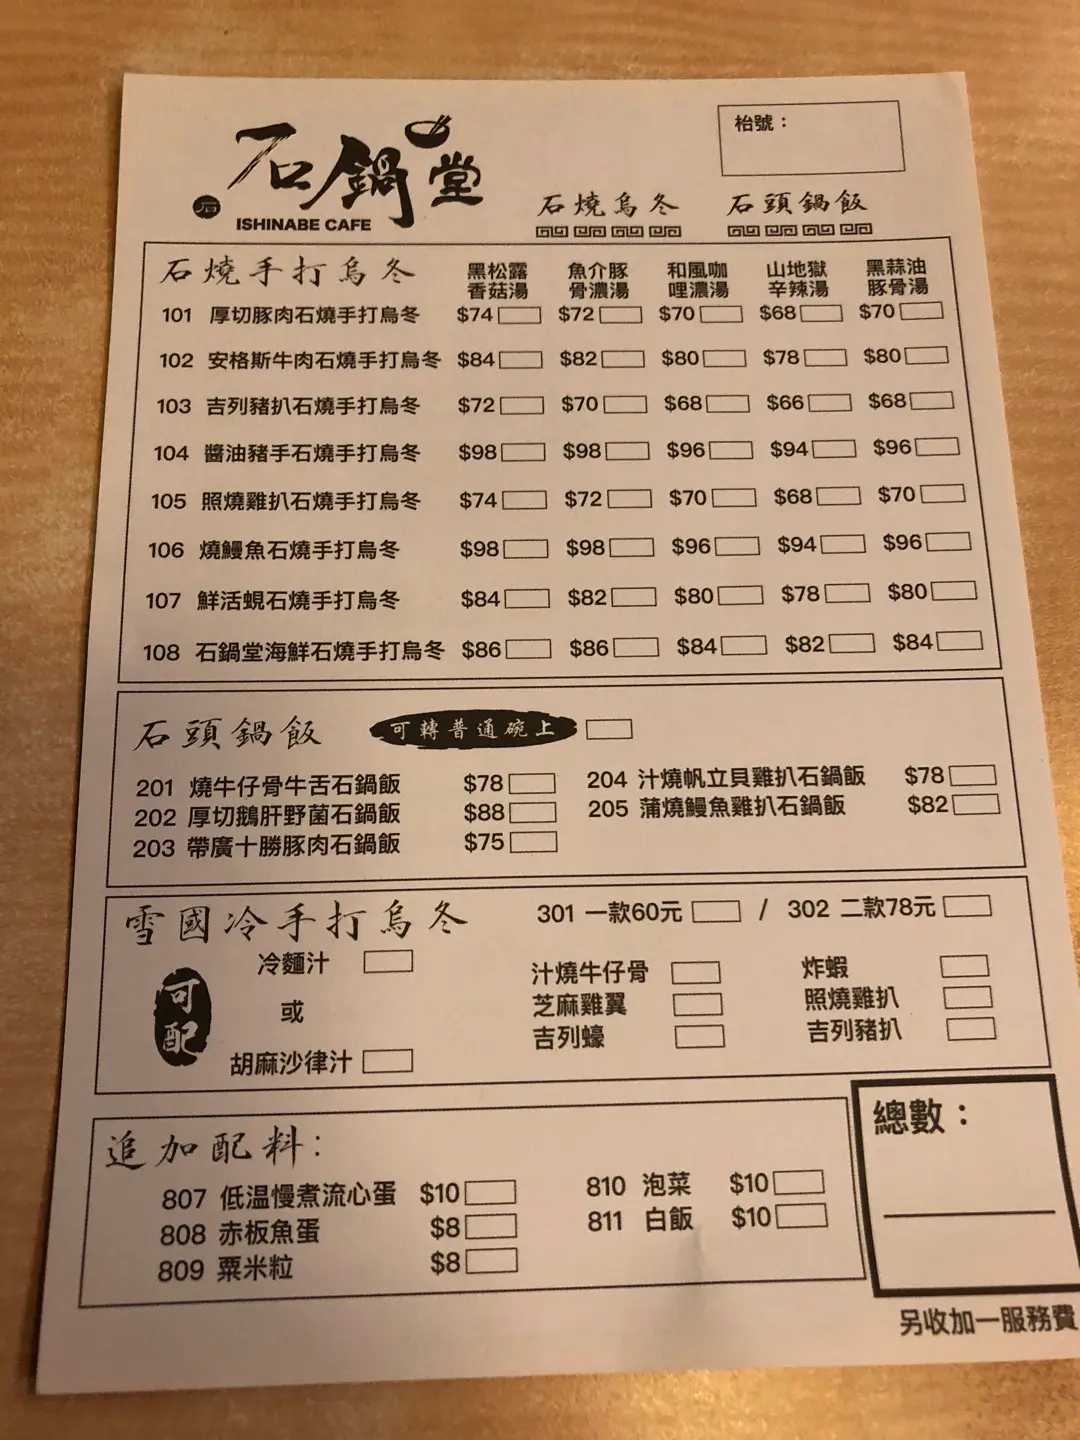 石鍋堂
石
ISHINABE CAFE
枱號：
石燒烏冬 石頭鍋飯
石燒手打烏冬 黑松露香菇湯 魚介豚骨濃湯 和風咖哩濃湯 山地獄辛辣湯 黑蒜油豚骨湯
101 厚切豚肉石燒手打烏冬 $74 $72 $70 $68 $70
102 安格斯牛肉石燒手打烏冬 $84 $82 $80 $78 $80
103 吉列豬扒石燒手打烏冬 $72 $70 $68 $66 $68
104 醬油豬手石燒手打烏冬 $98 $98 $96 $94 $96
105 照燒雞扒石燒手打烏冬 $74 $72 $70 $68 $70
106 燒鰻魚石燒手打烏冬 $98 $98 $96 $94 $96
107 鮮活蜆石燒手打烏冬 $84 $82 $80 $78 $80
108 石鍋堂海鮮石燒手打烏冬 $86 $86 $84 $82 $84
石頭鍋飯 可轉普通碗上
201 燒牛仔骨牛舌石鍋飯 $78 204 汁燒帆立貝雞扒石鍋飯 $78
202 厚切鵝肝野菌石鍋飯 $88 205 蒲燒鰻魚雞扒石鍋飯 $82
203 帶廣十勝豚肉石鍋飯 $75
雪國冷手打烏冬 301 一款60元 / 302 二款78元
可配
冷麵汁 汁燒牛仔骨 炸蝦
或 芝麻雞翼 照燒雞扒
胡麻沙律汁 吉列蠔 吉列豬扒
追加配料：
807 低溫慢煮流心蛋 $10 810 泡菜 $10
808 赤板魚蛋 $8 811 白飯 $10
809 粟米粒 $8
總數：
另收加一服務費